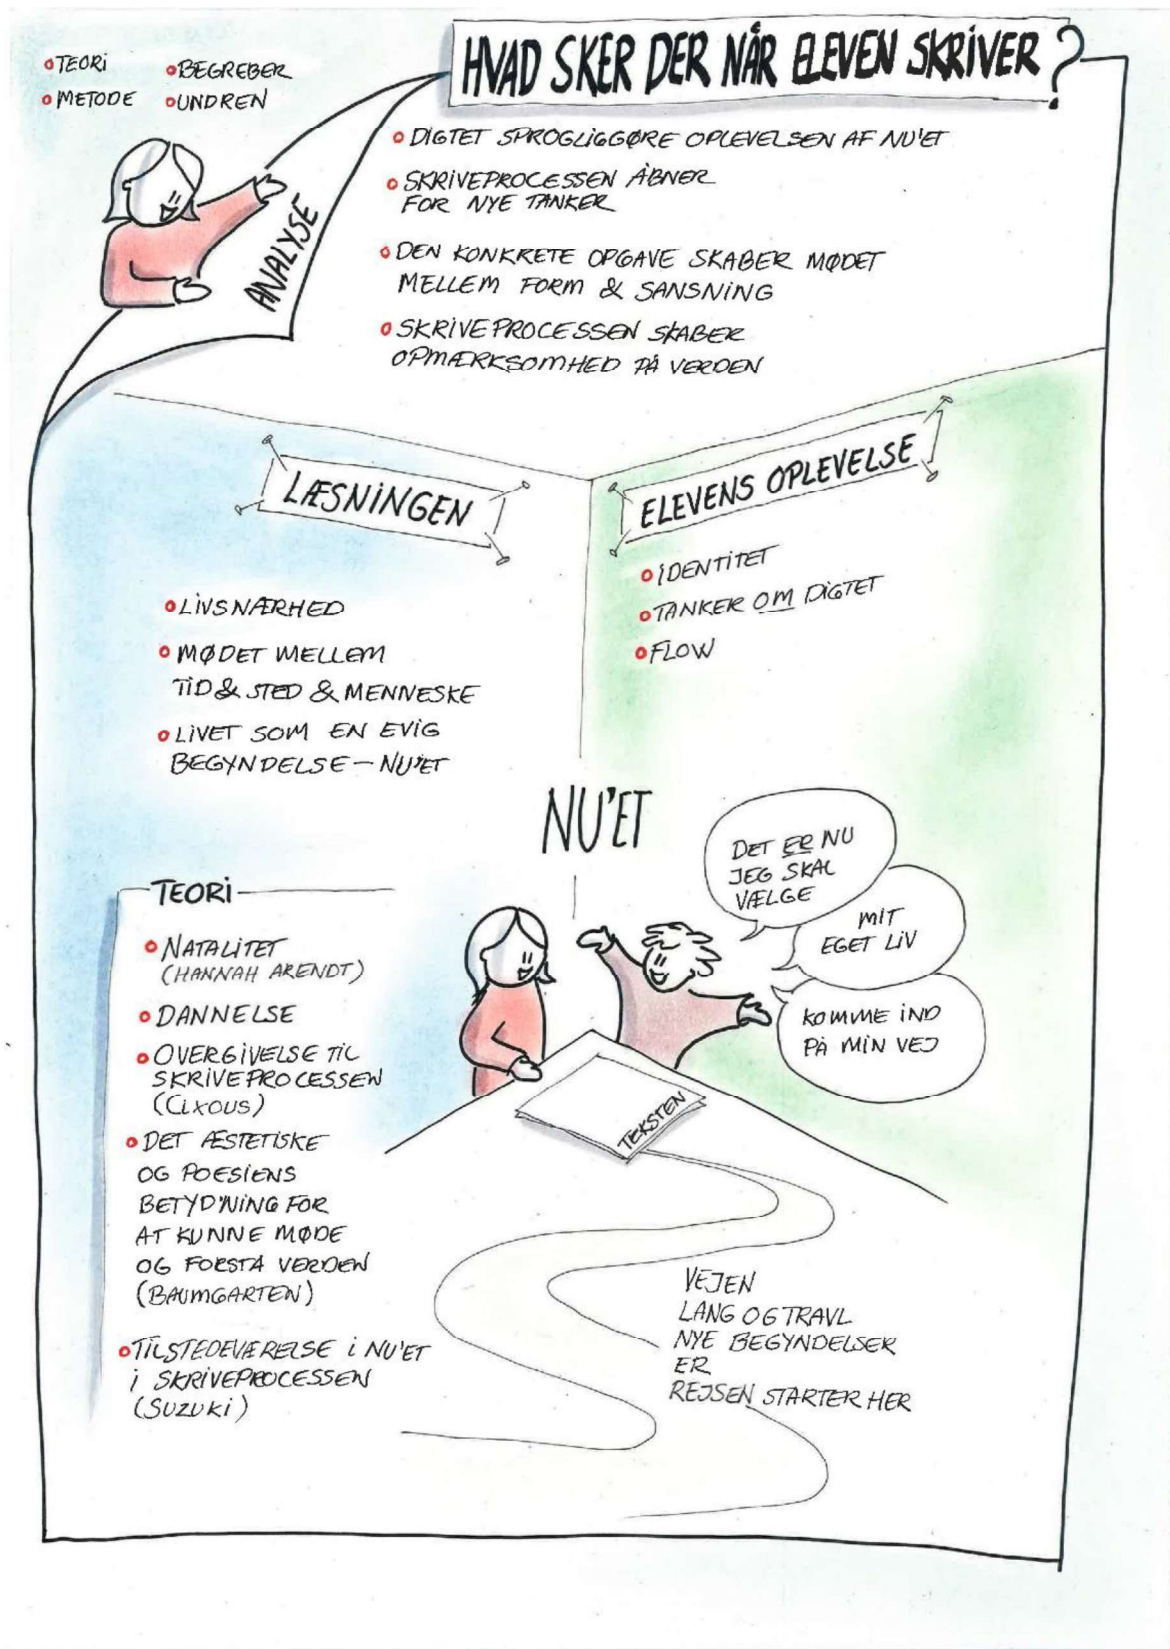 HVAD SKER DER NÅR ELEVEN SKRIVER?
TEORI
BEGREBER
METODE
UNDREN
ANALYSE
DIGTET SPROGLIGGØRE OPLEVELSEN AF NU'ET
SKRIVEPROCESSEN ÅBNER
FOR NYE TANKER
DEN KONKRETE OPGAVE SKABER MØDET
MELLEM FORM & SANSNING
SKRIVEPROCESSEN SKABER
OPMÆRKSOMHED PÅ VERDEN
LÆSNINGEN
LIVSNÆRHED
MØDET MELLEM
TID & STED & MENNESKE
LIVET SOM EN EVIG
BEGYNDELSE – NU'ET
ELEVENS OPLEVELSE
IDENTITET
TANKER OM DIGTET
FLOW
NU'ET
DET ER NU
JEG SKAL
VÆLGE
MIT
EGET LIV
KOMME IND
PÅ MIN VEJ
TEORI
NATALITET
(HANNAH ARENDT)
DANNELSE
OVERGIVELSE TIL
SKRIVEPROCESSEN
(CIXOUS)
DET ÆSTETISKE
OG POESIENS
BETYDNING FOR
AT KUNNE MØDE
OG FORSTÅ VERDEN
(BAUMGARTEN)
TILSTEDEVÆRELSE I NU'ET
I SKRIVEPROCESSEN
(SUZUKI)
TEKSTEN
VEJEN
LANG OG TRAVL
NYE BEGYNDELSER
ER
REJSEN STARTER HER